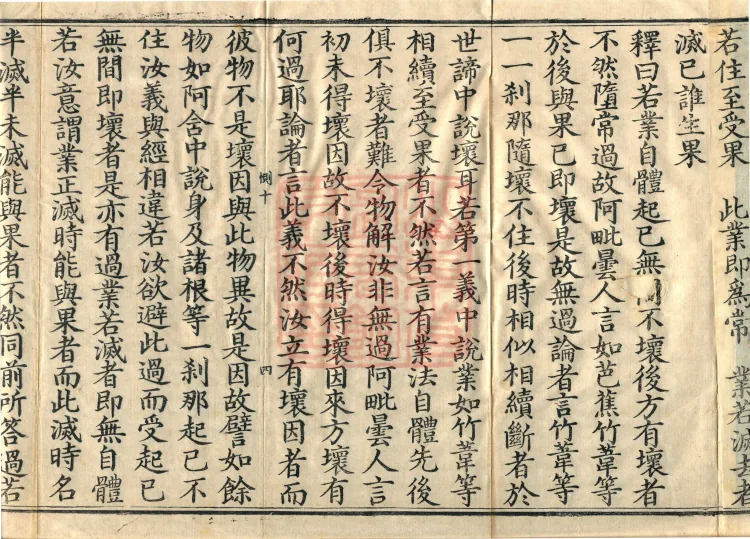 若住至受果　此業即為常　業若滅去者
滅已誰生果
釋曰若業自體起已無間不壞後方有壞者
不然墮常過故阿毗曇人言如芭蕉竹葦等
於後與果已即壞是故無過論者言竹葦等
一一剎那隨壞不住後時相似相續斷者於
世諦中說壞耳若第一義中說業如竹葦等
相續至受果者不然若言有業法自體先後
俱不壞者難令物解汝非無過阿毗曇人言
初未得壞因故不壞後時得壞因來方壞有
何過耶論者言此義不然汝立有壞因者而
惻十　四
彼物不是壞因與此物異故是因故譬如餘
物如阿含中說身及諸根等一剎那起已不
住汝義與經相違若汝欲避此過而受起已
無間即壞者是亦有過業若滅者即無自體
若汝意謂業正滅時能與果者而此滅時名
半滅半未滅能與果者不然同前所答過若